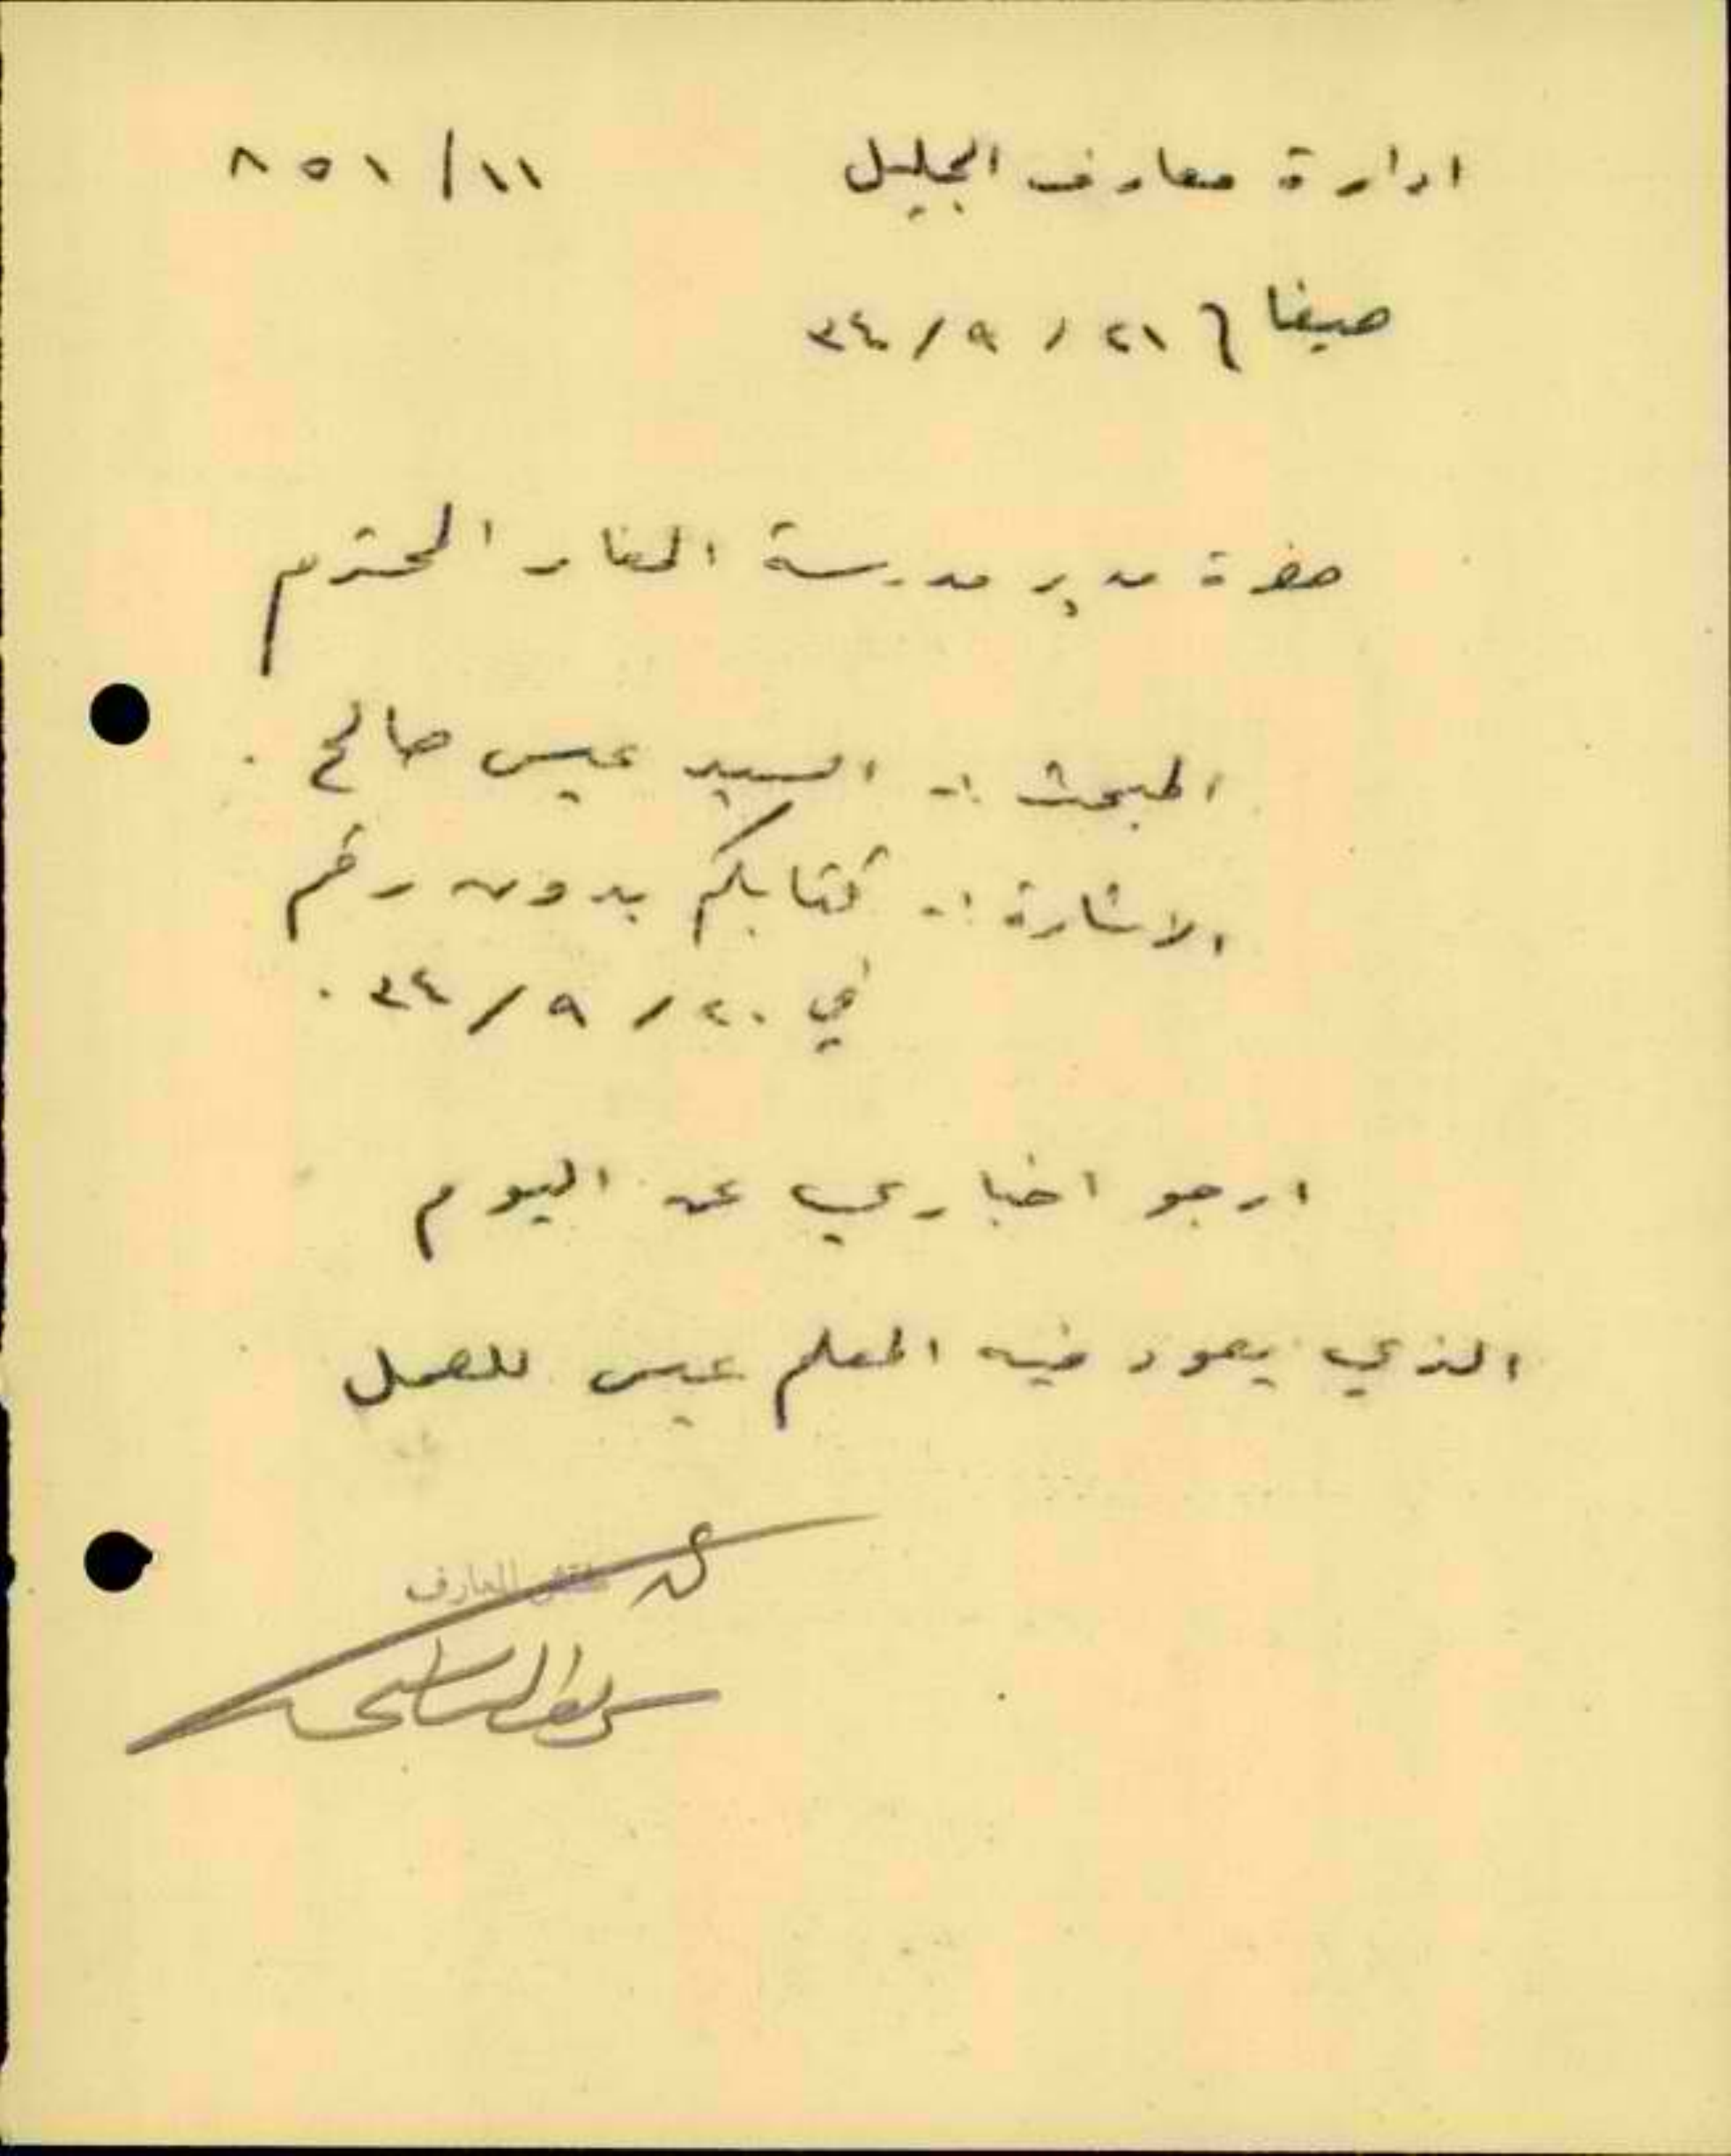 ادارة معارف الجليل ١١/٨٥١
حيفا ٢١/٩/٣٤
حضرة مدير مدرسة المغار المحترم
المبحث :- السيد عيسى صالح .
الاشارة :- كتابكم بدون رقم
في ٢٠/٩/٣٤ .
ارجو اخباري عن اليوم
الذي يعود فيه المعلم عيسى للعمل
عن مفتش المعارف